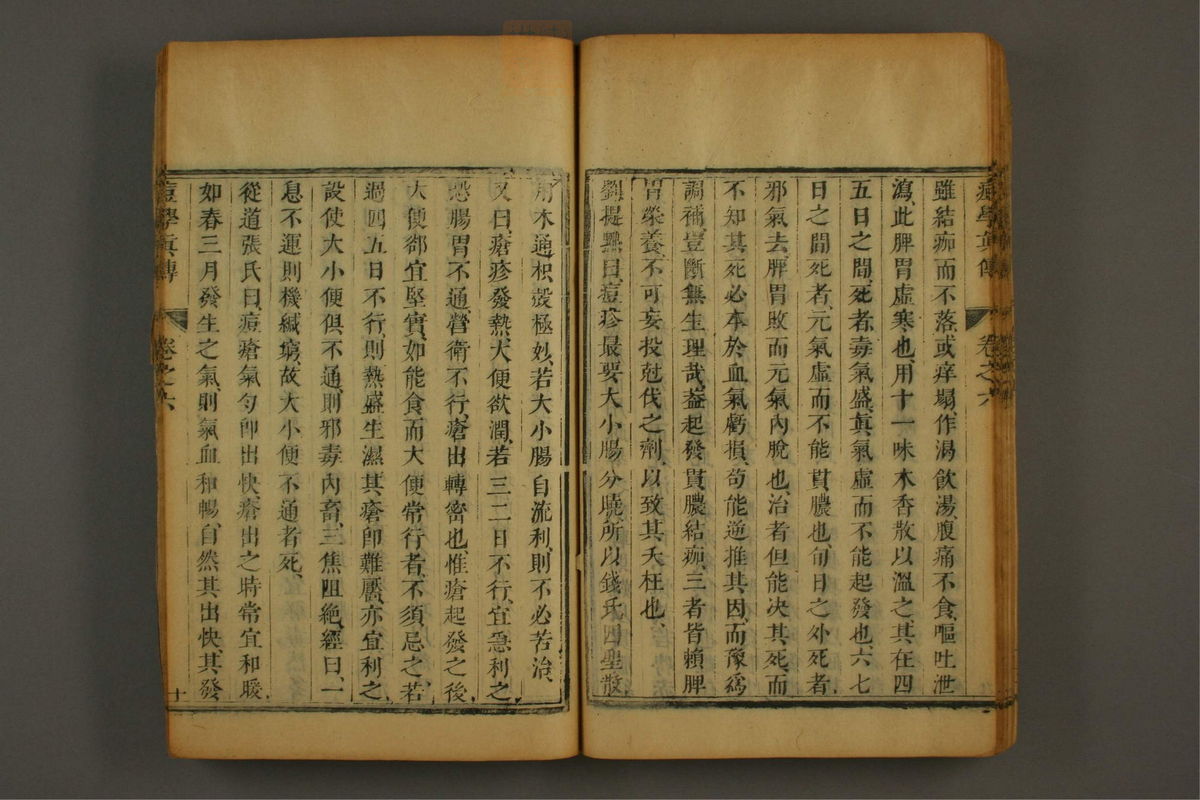 痘學真傳 卷之六
雖結痂而不落、或痒塌、作渴飲湯、腹痛不食、嘔吐泄
瀉、此脾胃虛寒也、用十一味木香散以溫之、其在四
五日之間、死者、毒氣盛、真氣虛而不能起發也、六七
日之間死者、元氣虛而不能貫膿也、旬日之外死者
邪氣去、脾胃敗而元氣內脫也、治者但能决其死、而
不知其死必本於血氣虧損、苟能逆推其因、而豫爲
調補、豈斷無生理哉、葢起發貫膿結痂、三者皆賴脾
胃榮養、不可妄投尅伐之劑、以致其夭枉也、
劉提舉曰、痘疹最要大小腸分曉、所以錢氏四聖散
用木通枳殼極妙、若大小腸自流利、則不必苦治、
又曰、瘡疹發熱、大便欲潤、若三二日不行、宜急利之
恐腸胃不通、營衛不行、瘡出轉密也、惟瘡起發之後、
大便郤宜堅實、如能食而大便常行者、不須忌之、若
過四五日不行、則熱盛生濕、其瘡卽難靨、亦宜利之
設使大小便俱不通、則邪毒內畜、三焦阻絶、經曰、一
息不運則機緘窮、故大小便不通者死、
從道張氏曰、痘瘡氣勻卽出快、瘡出之時常宜和暖
如春三月發生之氣、則氣血和暢、自然其出快、其發
痘學真傳 卷之六 十